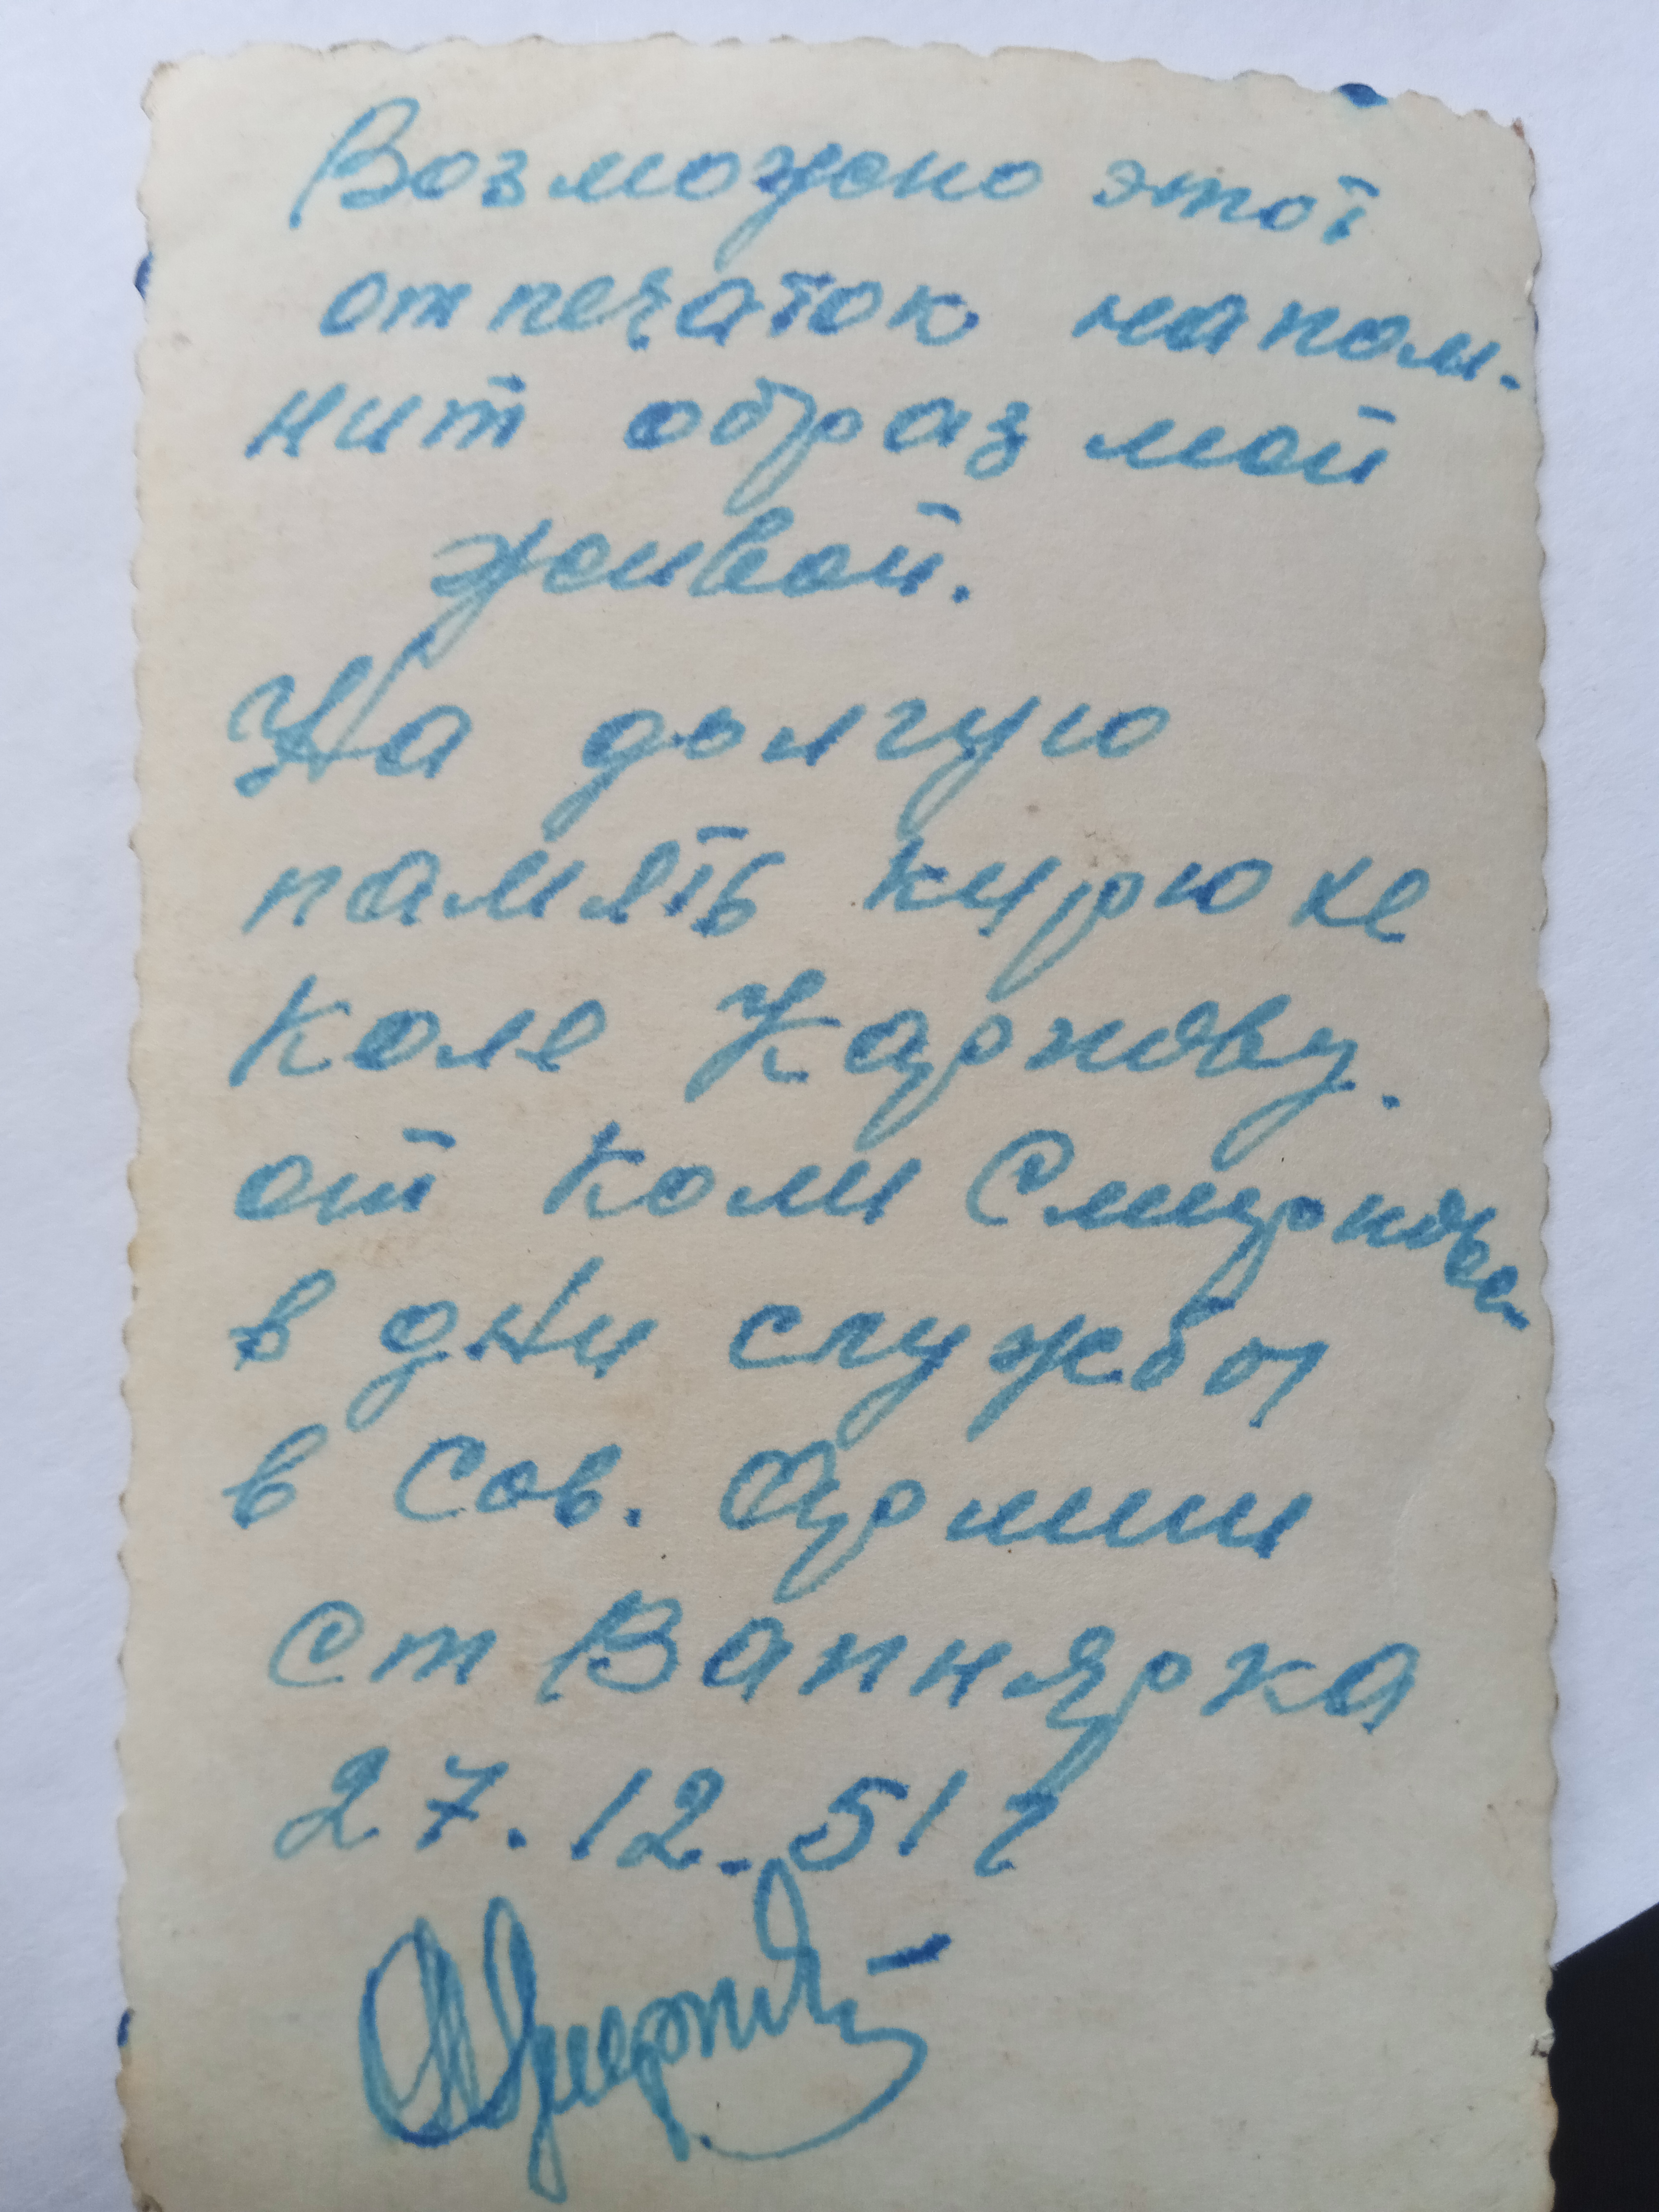 Возможно этот
отпечаток напом-
нит образ мой
живой.
На долгую
память кирюхе
Коле Карпову.
от Коли Смирнова
в дни службы
в Сов. Армии
ст Вапнярка
27.12.51г